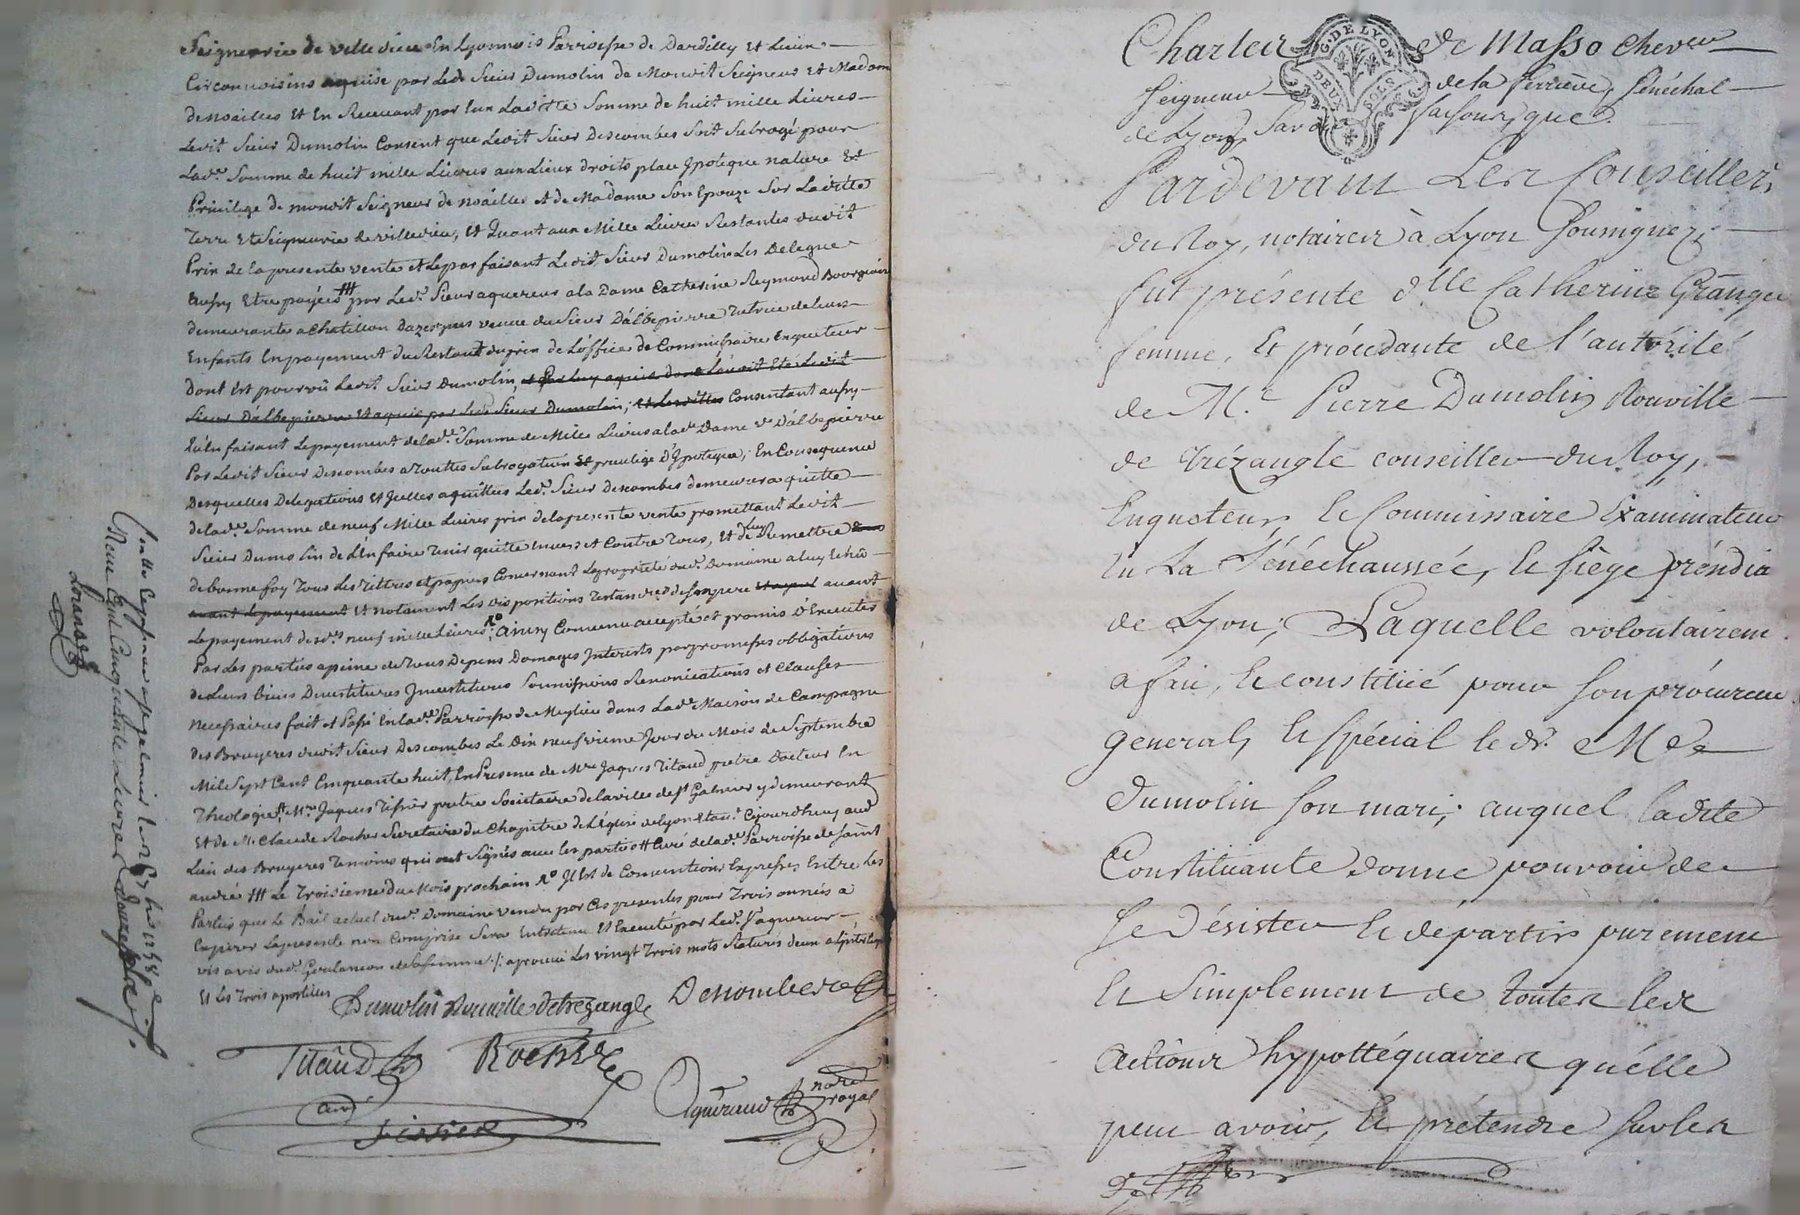 Seigneurie de villedieu En Lyonnois Parroisse de Dardilly et Lieux
Circonvoisins aquise par Ledt Sieur Dumolin de Monsit Seigneur Et Madame
de noailles Et En Recevant par Eux Laditte Somme de huit mille Livres
Ledit Sieur Dumolin Consent que Ledit Sieur Descombes Soit Subrogé pour
Lade Somme de huit mille Livres aux Lieux droits place ypoteque nature Et
Privilege de mondit Seigneur de noailles et de Madame Son Epouze Sur Laditte
Terre Et Seigneurie de villedieu, Et Quant aux Mille Livres Restantes dudit
Prix de la presente vente et le parfaisant Ledit Sieur Dumolin Les Delegue
aussy Etre payées par Ledt Sieur aquereur a la Dame Catherine Reymond Bourgeoise
demeurante a Chatillon Dazergues veuve du Sieur Dalbepierre Tutrice de Leurs
Enfants En payement du Restant du prix de L'office de Commissaire Enqueteur
dont Est pourvû Ledit Sieur Dumolin,
Sieur Dalbepierre Et aquis par Ledt Sieur Dumolin; Consentant aussy
qu'en faisant Le payement de lade Somme de Milles Livres a lade Dame ve Dalbepierre
Par Ledit Sieur Descombes a Touttes Subrogation Et privilege D'ypoteque; En Consequence
Desquelles Delegations Et Icelles aquittées Ledt Sieur Descombes demeurera quitte
de lade Somme de neuf Mille Livres prix de la presente vente promettant Ledit
Sieur Dumolin de L'En faire Tenir quitte Envers et Contre Tous, Et de Luy Remettre
de bonne foy Tous Les Tittres et papiers Concernant La proprieté dudt Domaine a luy Echû
avant Le payement Et notament Les dispositions Testamentaires de son pere avant
Le payement desdts neuf mille Livres. Ainsy Convenu accepté et promis D'Executer
Par Les parties a peine de Tous Depens Domages Interests par promesses obligations
de Leurs biens Devestitures Investitures Soumissions Renonciations et Clauses
necessaires fait et Passé En lade Parroisse de Meylieu dans Lade Maison de Campagne
des Bruyeres dudit Sieur Descombes Le Dix neufvieme Jour du Mois de Septembre
Mil Sept Cent Cinquante huit, En Presence de Mre Jaques Titaud pretre Docteur En
Theologie, Mre Jaques Tissier pretre Societaire de la ville de St Galmier y demeurant
Et de Mr Claude Rocher Secretaire du Chapitre de L'Eglise de Lyon Etant Cejourdhuy aud
Lieu des Bruyeres Temoins qui ont Signés avec Les parties Curé de lade Parroisse de Saint
andré Le Troisieme du Mois prochain Il Est de Conventions Expresses Entre Les
Parties que Le Bail actuel dudt Domaine vendu par Ces presentes pour Trois années a
Expirer La presente non Comprise Sera Entretenu Et Executé par Ledt Sr aquereur
vis avis dudt et sa femme aprouvé Les vingt Trois mots Raturés
Et Les Trois apostilles
Dumolin Rouville detrezangle Descombes
Titaud Rocher
Curé
Tissier
Agniraud nore royal
Cinquante Livres douze sols
Loranson
G. DE LYON
DEUX SOLS
Charles de Masso Chever
Seigneur de la ferriere, Sénéchal
de Lyon, Savoir faisons, que
Pardevant Les Conseillers
du Roy, notaires à Lyon Soussignez,
fut présente dlle Catherine Granger
femme, Et procédante de l'autorité
de Mr. Pierre Dumolin Rouville
de Trézangle conseiller du Roy,
Enqueteur Et Commissaire Examinateur
En La Sénéchaussée, Et siège présidial
de Lyon; Laquelle volontairemt
a fait, Et constitué pour son procureur
general, Et spécial led. Me
Dumolin son mari, auquel ladite
Constituante donne pouvoir de
Se Désister Et départir purement
Et Simplement de toutes les
Actions hypottéquaires qu'elle
peut avoir, Et prétendre sur les